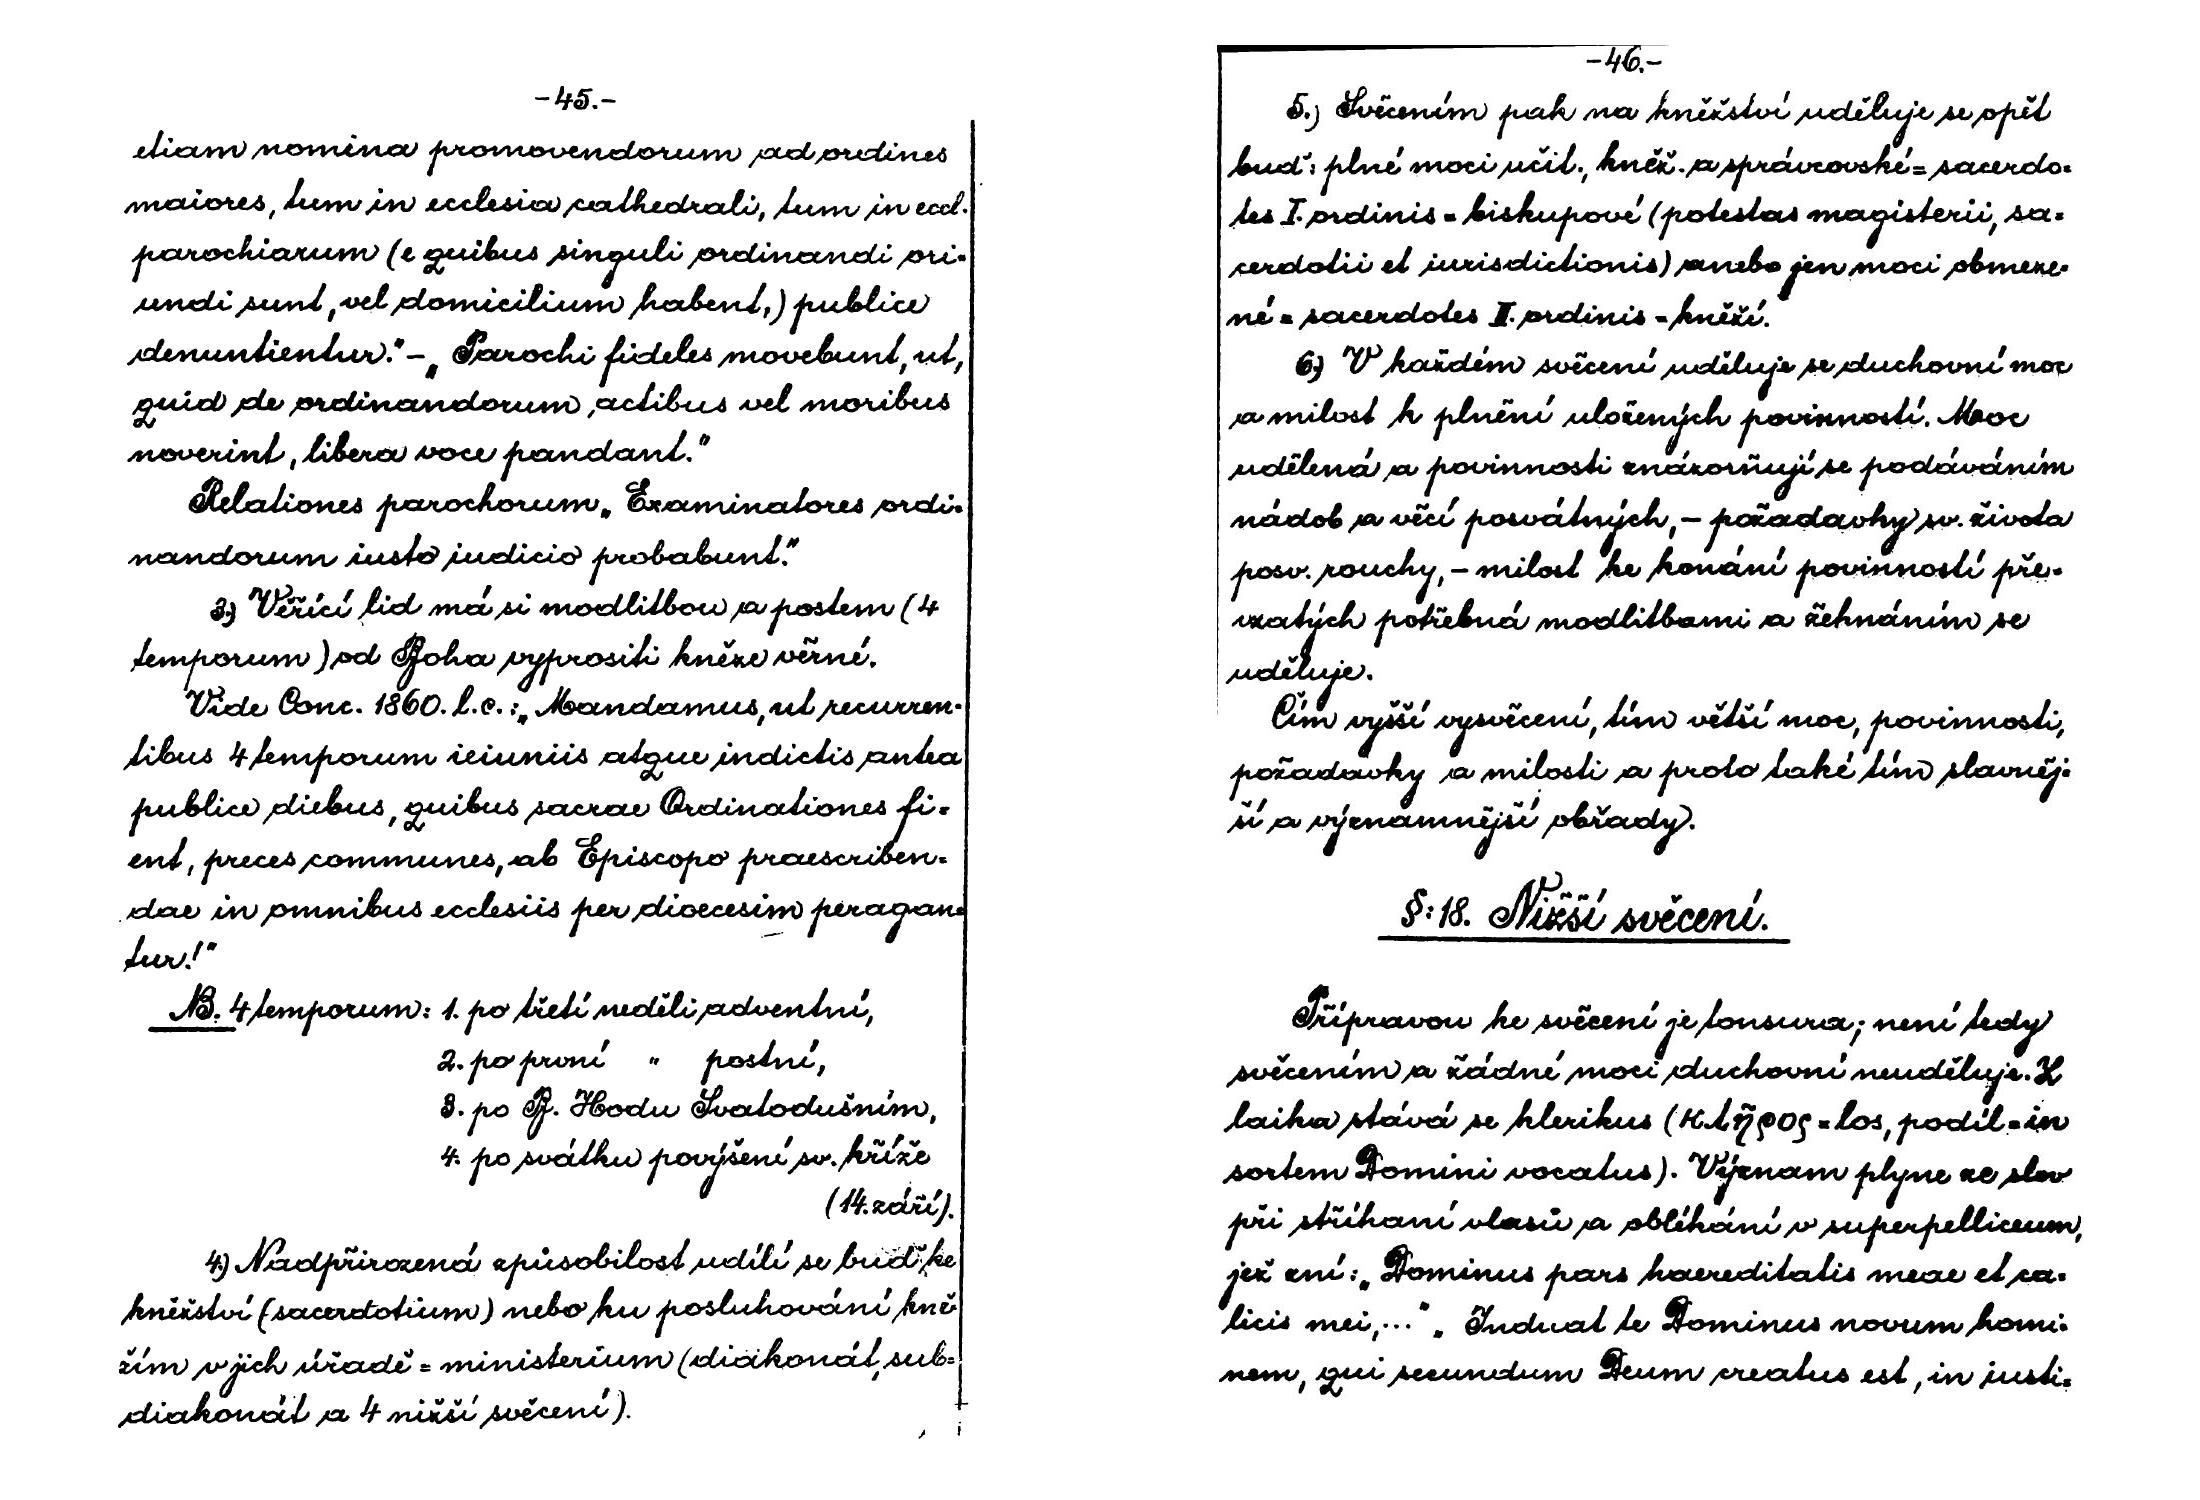 -45.-
etiam nomina promovendorum ad ordines
maiores, tum in ecclesia cathedrali, tum in eccl.
parochiarum (e quibus singuli ordinandi ori-
undi sunt, vel domicilium habent,) publice
denuntientur." – „Parochi fideles movebunt, ut,
quid de ordinandorum actibus vel moribus
noverint, libera voce pandant."
Relationes parochorum „Examinatores ordi-
nandorum iusto iudicio probabunt."
3.) Věřící lid má si modlitbou a postem (4
temporum) od Boha vyprositi kněze věrné.
Vide Conc. 1860. l.c.: „Mandamus, ut recurren-
tibus 4 temporum ieiuniis atque indictis antea
publice diebus, quibus sacrae Ordinationes fi-
ent, preces communes, ab Episcopo praescriben-
dae in omnibus ecclesiis per dioecesim peragan-
tur!"
NB. 4 temporum: 1. po třetí neděli adventní,
2. po první " postní,
3. po B. Hodu Svatodušním,
4. po svátku povýšení sv. kříže
(14. září).
4.) Nadpřirozená způsobilost udílí se buď ke
kněžství (sacerdotium) nebo ku posluhování kně
žím v jich úřadě = ministerium (diakonát, sub-
diakonát a 4 nižší svěcení).
-46.-
5.) Svěcením pak na kněžství uděluje se opět
buď: plné moci učit., kněž. a správcovské = sacerdo-
tes I. ordinis = biskupové (potestas magisterii, sa-
cerdotii et iurisdictionis) anebo jen moci obmeze-
né = sacerdotes II. ordinis = kněží.
6.) V každém svěcení uděluje se duchovní moc
a milost k plnění uložených povinností. Moc
udělená a povinnosti znázorňují se podáváním
nádob a věcí posvátných, – požadavky sv. života
posv. rouchy, – milost ke konání povinností pře-
vzatých potřebná modlitbami a žehnáním se
uděluje.
Čím vyšší vysvěcení, tím větší moc, povinnosti,
požadavky a milosti a proto také tím slavněj-
ší a významnější obřady.
§: 18. Nižší svěcení.
Přípravou ke svěcení je tonsura; není tedy
svěcením a žádné moci duchovní neuděluje. Z
laika stává se klerikus (κλῆρος = los, podíl = in
sortem Domini vocatus). Význam plyne ze slov
při stříhaní vlasů a obléhání v superpelliceum,
jež zní: „Dominus pars haereditatis meae et ca-
licis mei,..." „Induat te Dominus novum homi-
nem, qui secundum Deum creatus est, in iusti-